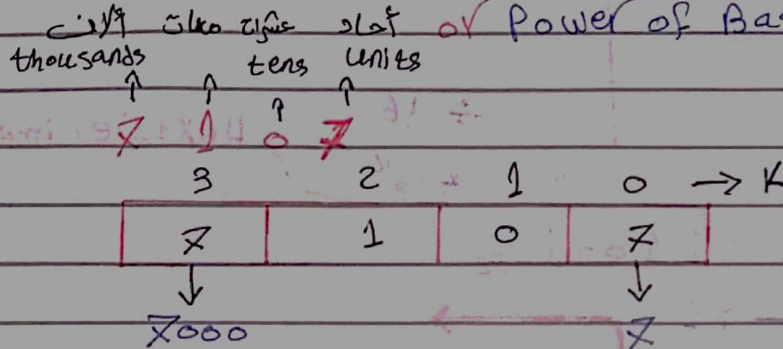 آلاف مئات عشرات آحاد or Power of Ba
thousands tens units
7 1 0 7
3 2 1 0 → K
7 1 0 7
7000 7